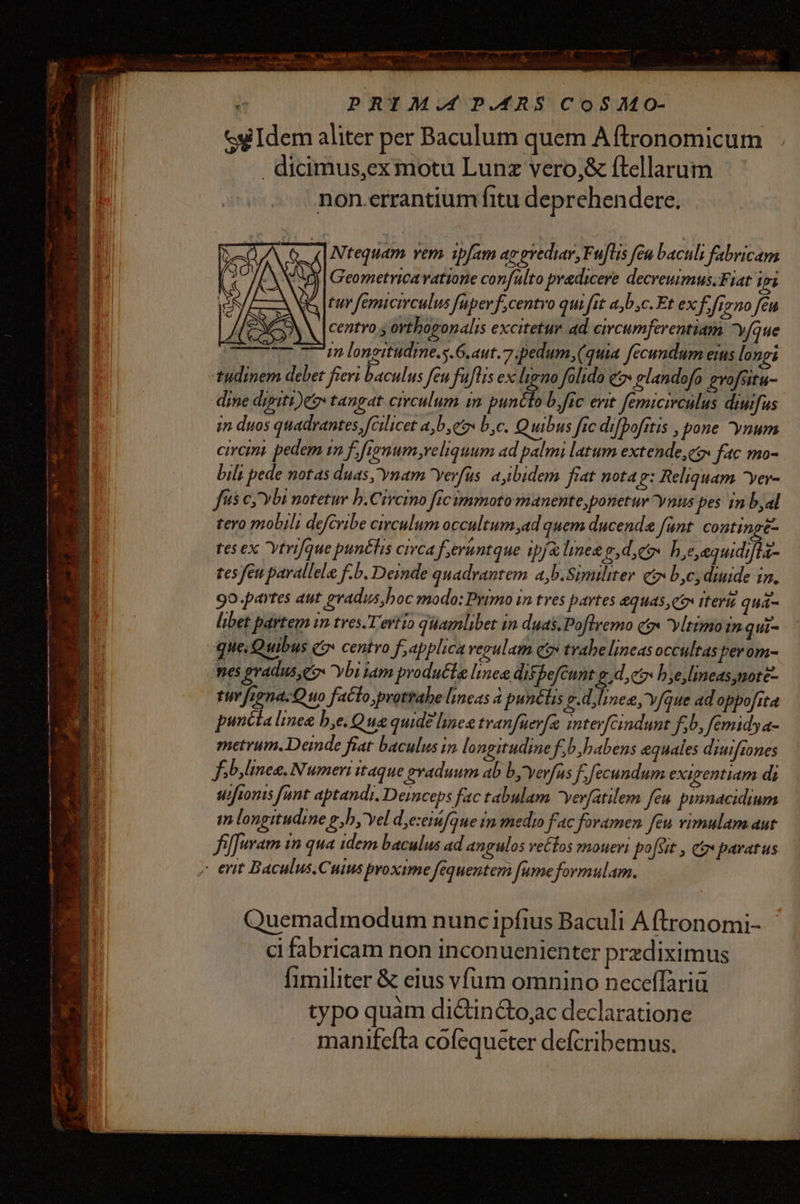 PRIMA PARS COSMO-
Idem aliter per Baculum quem Aſtronomicum
dicimus,ex motu Lunæ vero,& ſtellarum
non errantium ſitu deprehendere.
Ntequam rem ipſam aggrediar,Fuſtis ſeu baculi fabricam
Geometrica ratione conſulto prædicere decreuimus.Fiat igi
tur ſemicirculus ſuper f,centro qui ſit a,b,c. Et ex f,ſigno ſeu
centro , orthogonalis excitetur ad circumferentiam vſque
in longitudine.5.6.aut.7.pedum,(quia ſecundum eius longi
tudinem debet fieri baculus ſeu fuſtis ex ligno ſolido & glandoſo groſsitu-
dine digiti)& tangat circulum in puncto b,ſic erit ſemicirculus diuiſus
in duos quadrantes,ſcilicet a,b,& b,c. Quibus ſic diſpoſitis , pone vnum
circini pedem in f,ſignum,reliquum ad palmi latum extende,& fac mo-
bili pede notas duas,vnam verſus a,ibidem fiat nota g: Reliquam ver-
ſus c,vbi notetur h.Circino ſic immoto manente,ponetur vnus pes in b,al
tero mobili deſcribe circulum occultum,ad quem ducendæ ſunt contingẽ-
tes ex vtriſque punctis circa f,eruntque ipſæ lineæ g,d,& h,e,æquidiſtã-
tes ſeu parallelæ f.b. Deinde quadrantem a,b.Similiter & b,c, diuide in.
90.partes aut gradus,hoc modo: Primo in tres partes æquas,& iterũ quã-
libet partem in tres.Tertio quamlibet in duas.Poſtremo & vltimo in qui-
que.Quibus & centro f,applica regulam & trahe lineas occultas per om-
nes gradus,& vbi iam productæ lineæ diſpeſcunt g,d,& h,e,lineas,notẽ-
tur ſigna:Quo facto,protrahe lineas à punctis g.d,lineæ,vſque ad oppoſita
puncta lineæ h,e.Quæ quidẽ lineæ tranſuerſæ interſcindunt f,b, ſemidya-
metrum.Deinde fiat baculus in longitudine f,b,habens æquales diuiſiones
f,b,lineæ.Numeri itaque graduum ab b,verſus f,ſecundum exigentiam di
uiſionis ſunt aptandi.Deinceps fac tabulam verſatilem ſeu pinnacidium
in longitudine g,h, vel d,e:eiuſque in medio fac foramen ſeu rimulam aut
fiſſuram in qua idem baculus ad angulos rectos moueri poſsit , & paratus
erit Baculus.Cuius proxime ſequentem ſume formulam.
Quemadmodum nunc ipſius Baculi Aſtronomi-
ci fabricam non inconuenienter prædiximus
ſimiliter & eius vſum omnino neceſſariũ
typo quàm diſtincto,ac declaratione
manifeſta cõſequẽter deſcribemus.